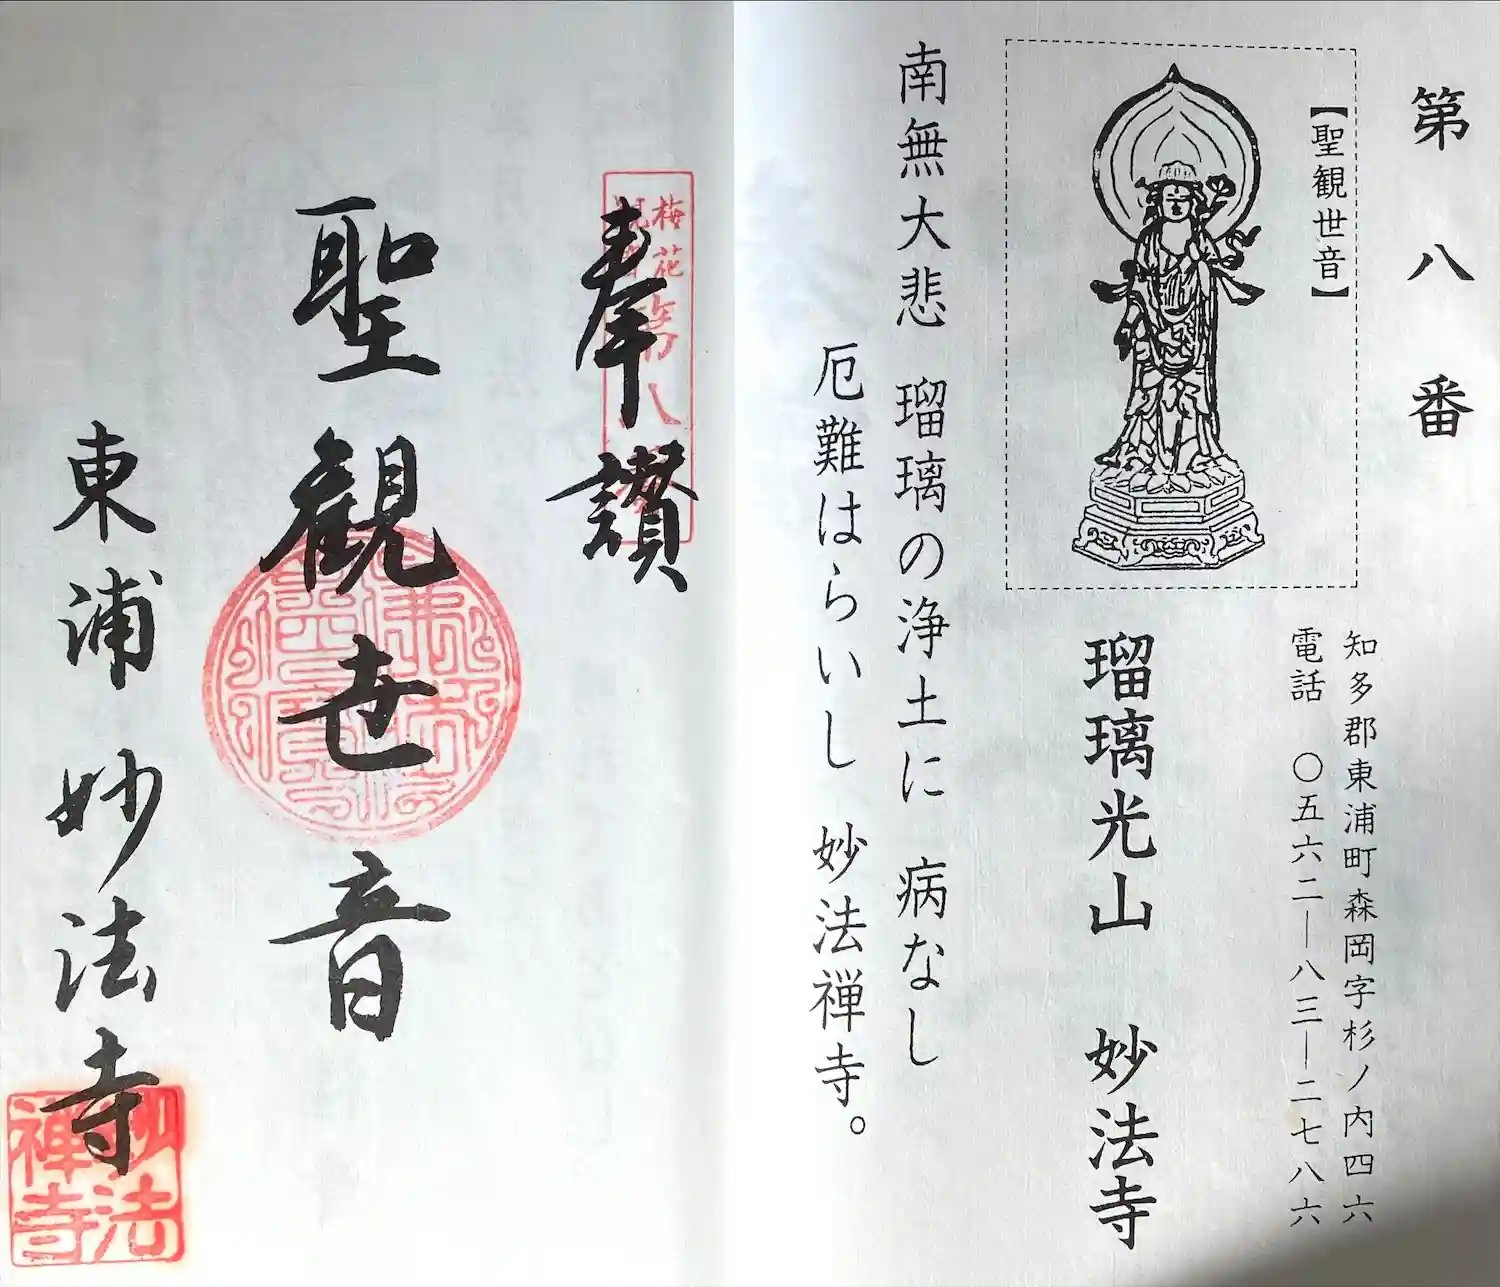 第八番
【聖観世音】
知多郡東浦町森岡字杉ノ内四六
電話 〇五六二―八三―二七八六
瑠璃光山 妙法寺
南無大悲 瑠璃の浄土に 病なし
厄難はらいし 妙法禅寺。
梅花
第八
奉讃
聖観世音
東浦妙法寺
妙法
禅寺